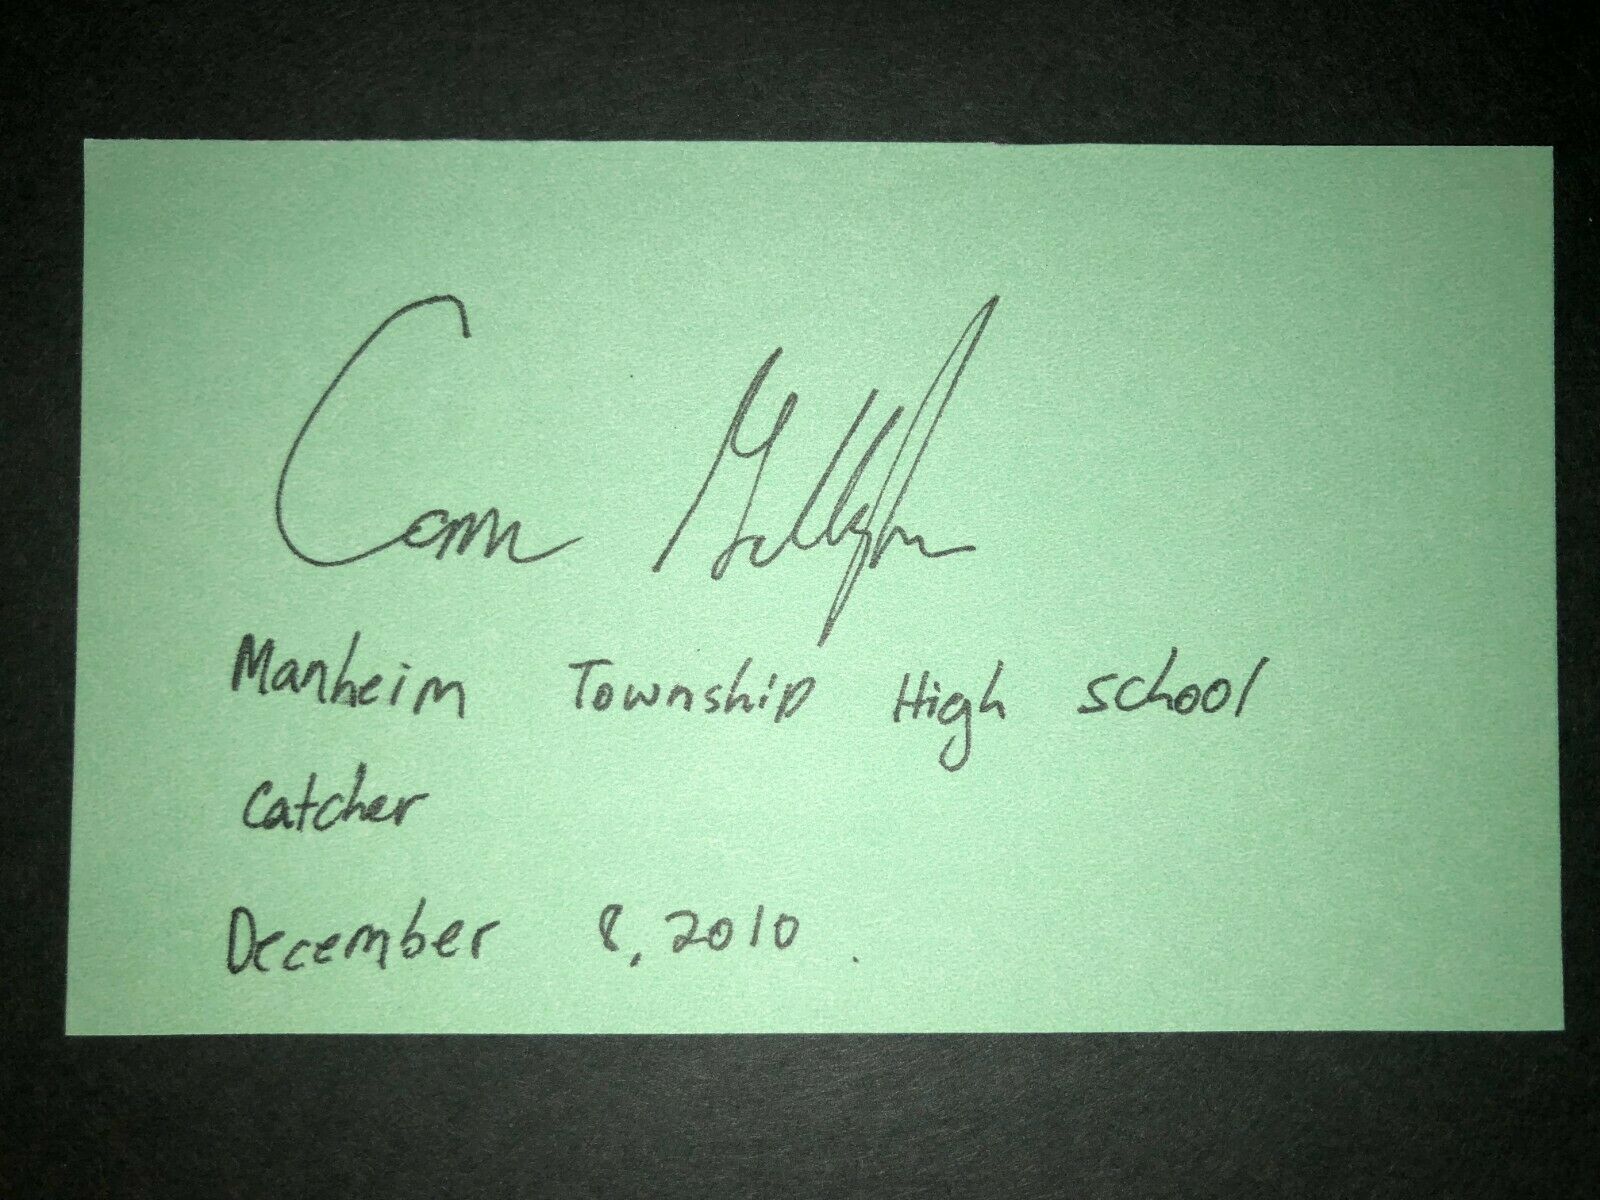 Cam Gallagher
Manheim Township High School
Catcher
December 8, 2010